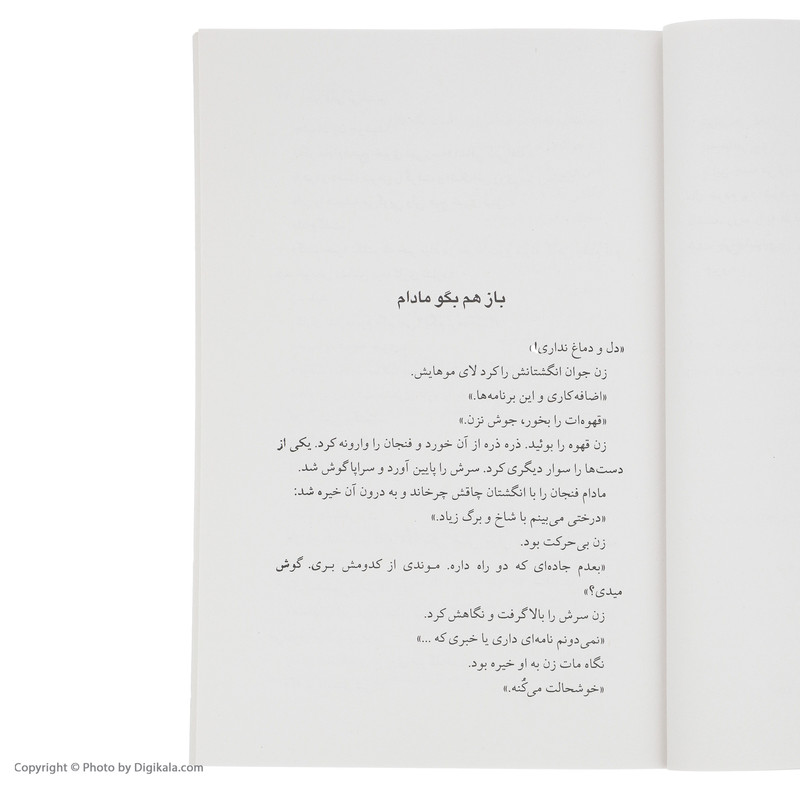 باز هم بگو مادام
«دل و دماغ نداری!»
زن جوان انگشتانش را کرد لای موهایش.
«اضافه‌کاری و این برنامه‌ها.»
«قهوه‌ات را بخور، جوش نزن.»
زن قهوه را بوئید. ذره ذره از آن خورد و فنجان را وارونه کرد. یکی از
دست‌ها را سوار دیگری کرد. سرش را پایین آورد و سراپا گوش شد.
مادام فنجان را با انگشتان چاقش چرخاند و به درون آن خیره شد:
«درختی می‌بینم با شاخ و برگ زیاد.»
زن بی‌حرکت بود.
«بعدم جاده‌ای که دو راه داره. موندی از کدومش بری. گوش
میدی؟»
زن سرش را بالا گرفت و نگاهش کرد.
«نمی‌دونم نامه‌ای داری یا خبری که ...»
نگاه مات زن به او خیره بود.
«خوشحالت می‌کُنه.»
Copyright © Photo by Digikala.com